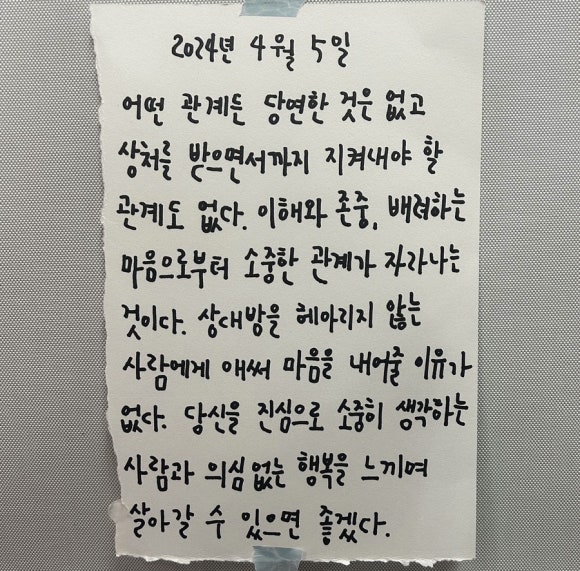 2024년 4월 5일
어떤 관계든 당연한 것은 없고
상처를 받으면서까지 지켜내야 할
관계도 없다. 이해와 존중, 배려하는
마음으로부터 소중한 관계가 자라나는
것이다. 상대방을 헤아리지 않는
사람에게 애써 마음을 내어줄 이유가
없다. 당신을 진심으로 소중히 생각하는
사람과 의심없는 행복을 느끼며
살아갈 수 있으면 좋겠다.